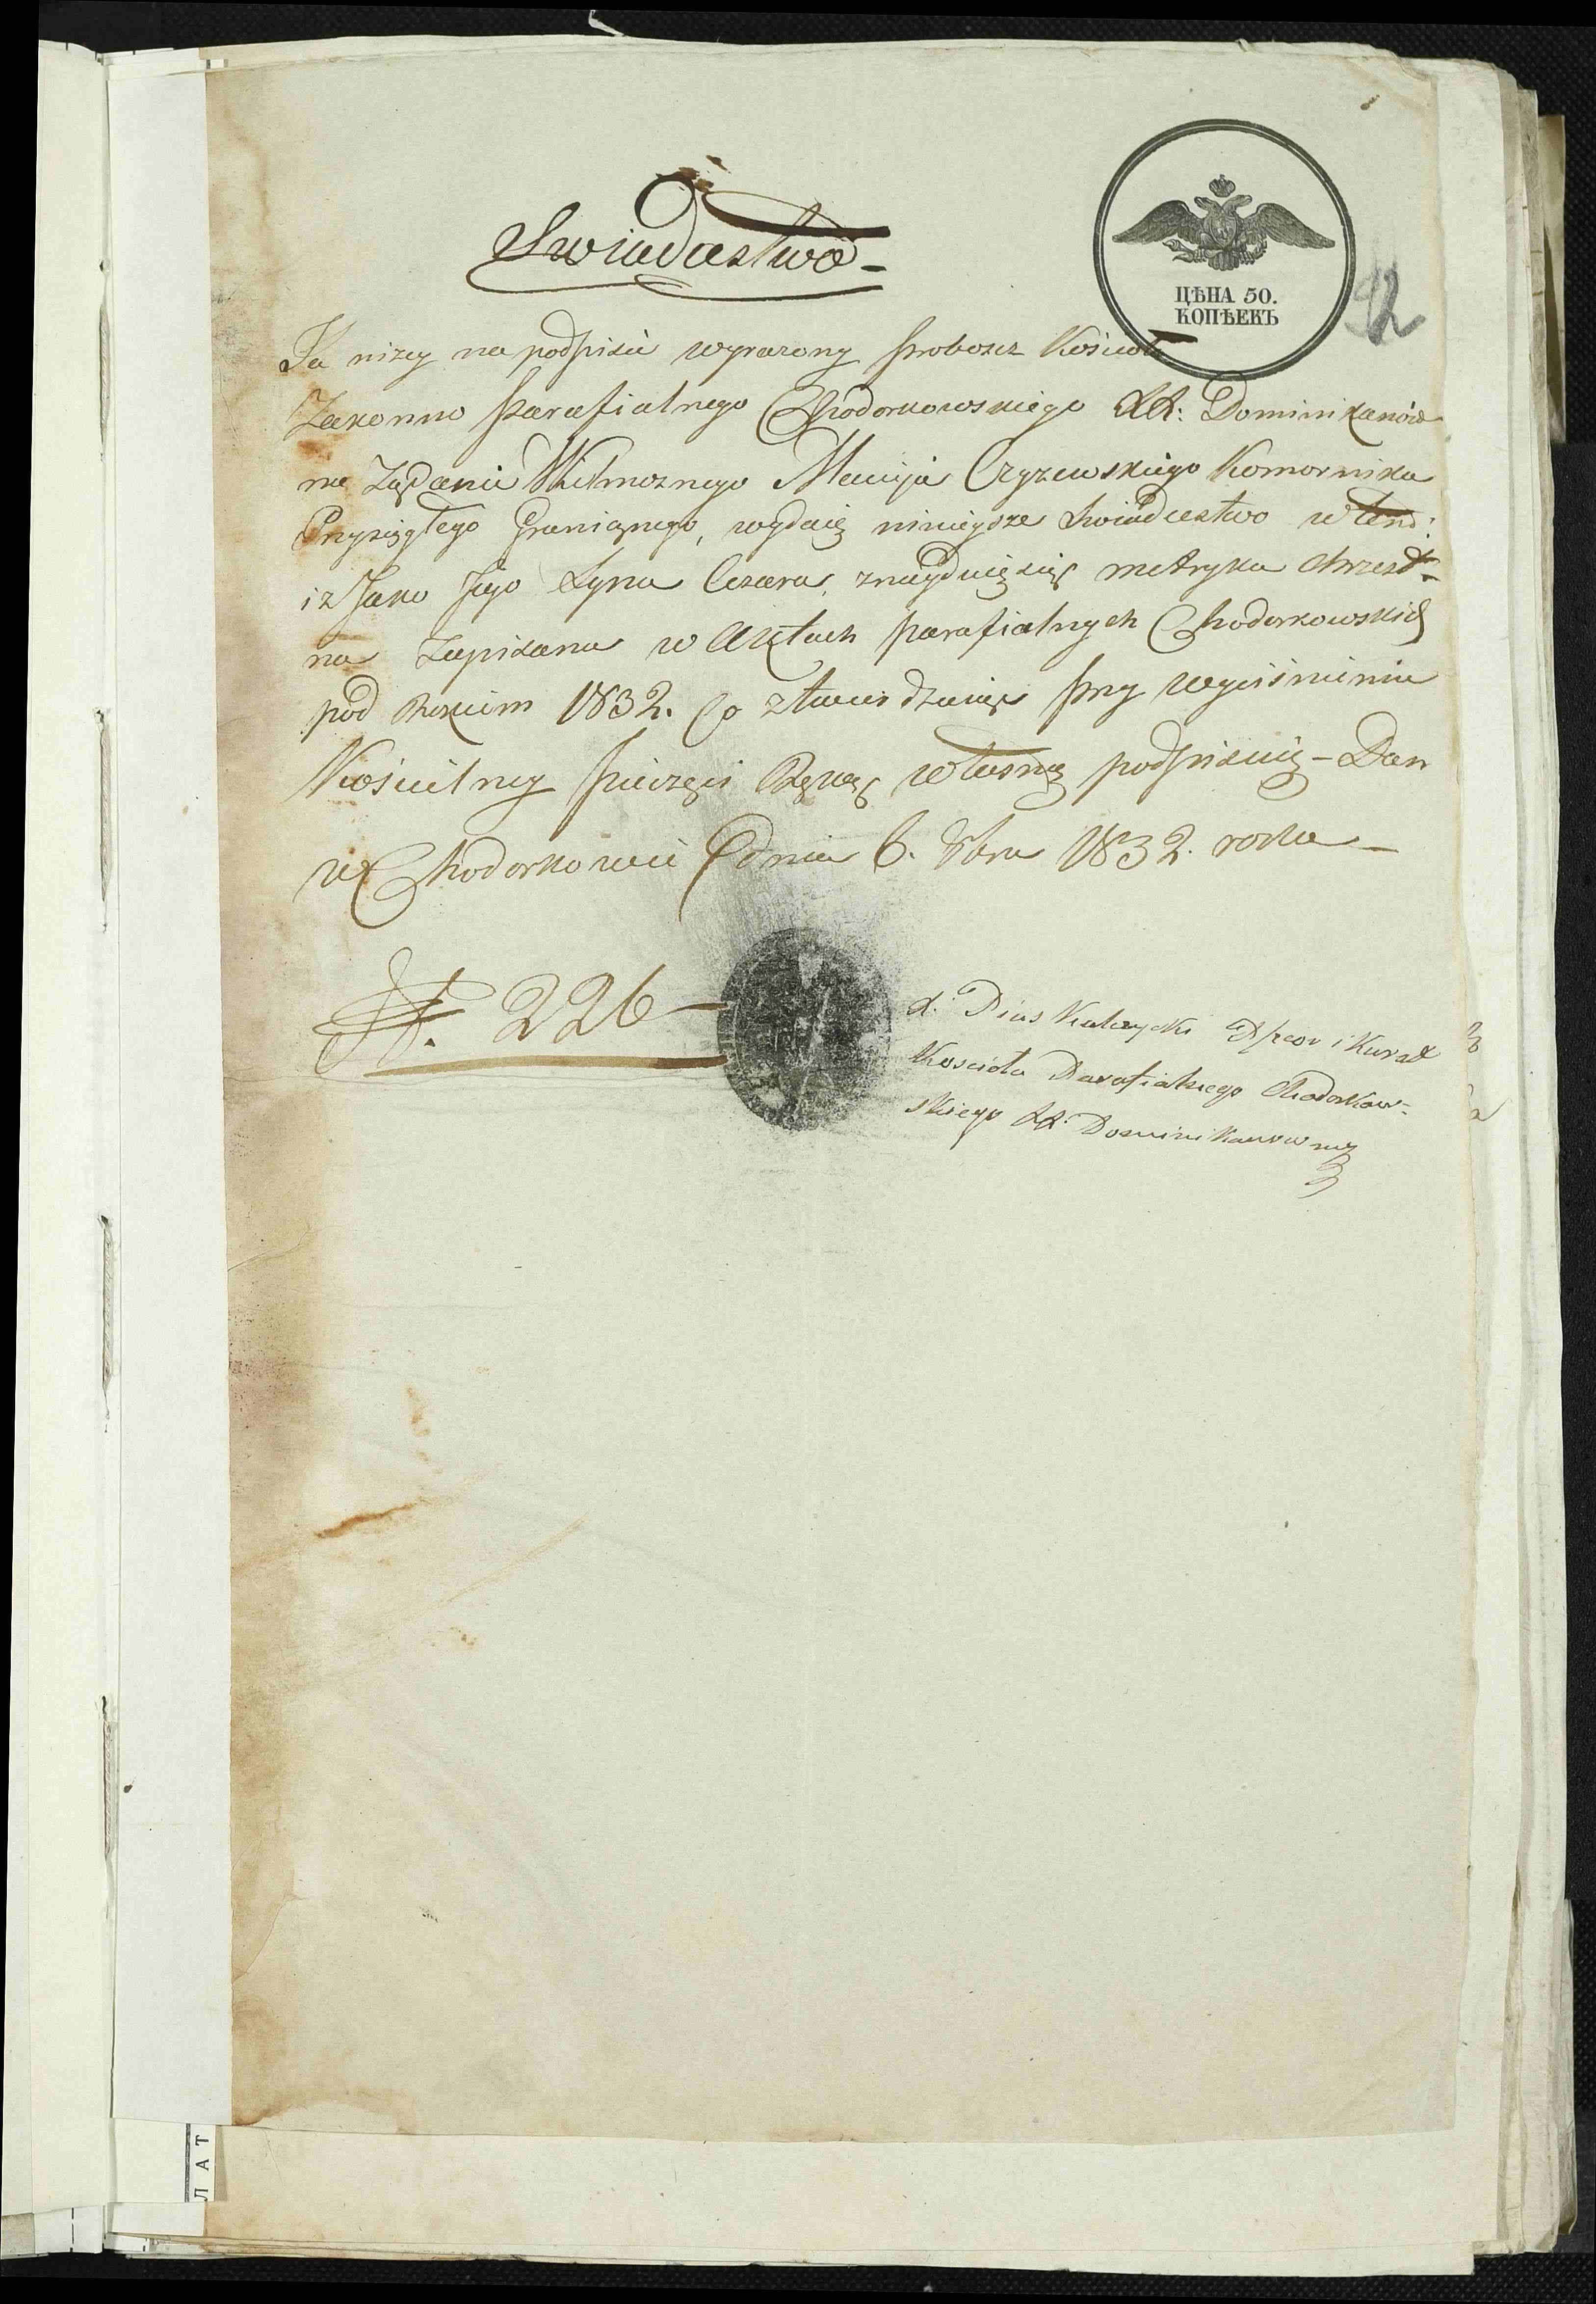 Swiadectwo -
ЦѢНА 50.
КОПѢЕКЪ
12
Ja niżey na podpisie wyrażony proboszcz Kościoła
Zakonno parafialnego Chodorkowskiego XX: Dominikanów
na Żądanie Wielmożnego Macieja Czyżewskiego Komornika
Przysięgłego Granicznego, wydaię ninieysze Świadectwo w tem:
iż Jako Jego Syna Cezara, znayduię się metryka chrzest-
na Zapisana w Aktach parafialnych Chodorkowskich
pod Rokiem 1832. Co ztwierdzaiąc przy wyciśnieniu
Kościelney pieczęci Ręką własną podpisuię - Dan
w Chodorkowie dnia 6. 8bra 1832. roku -
N. 226 -
X. Pius Przeor i Kurat
Kościoła Parafialnego Chodorkow-
skiego XX. Dominikanow mp
Л А Т